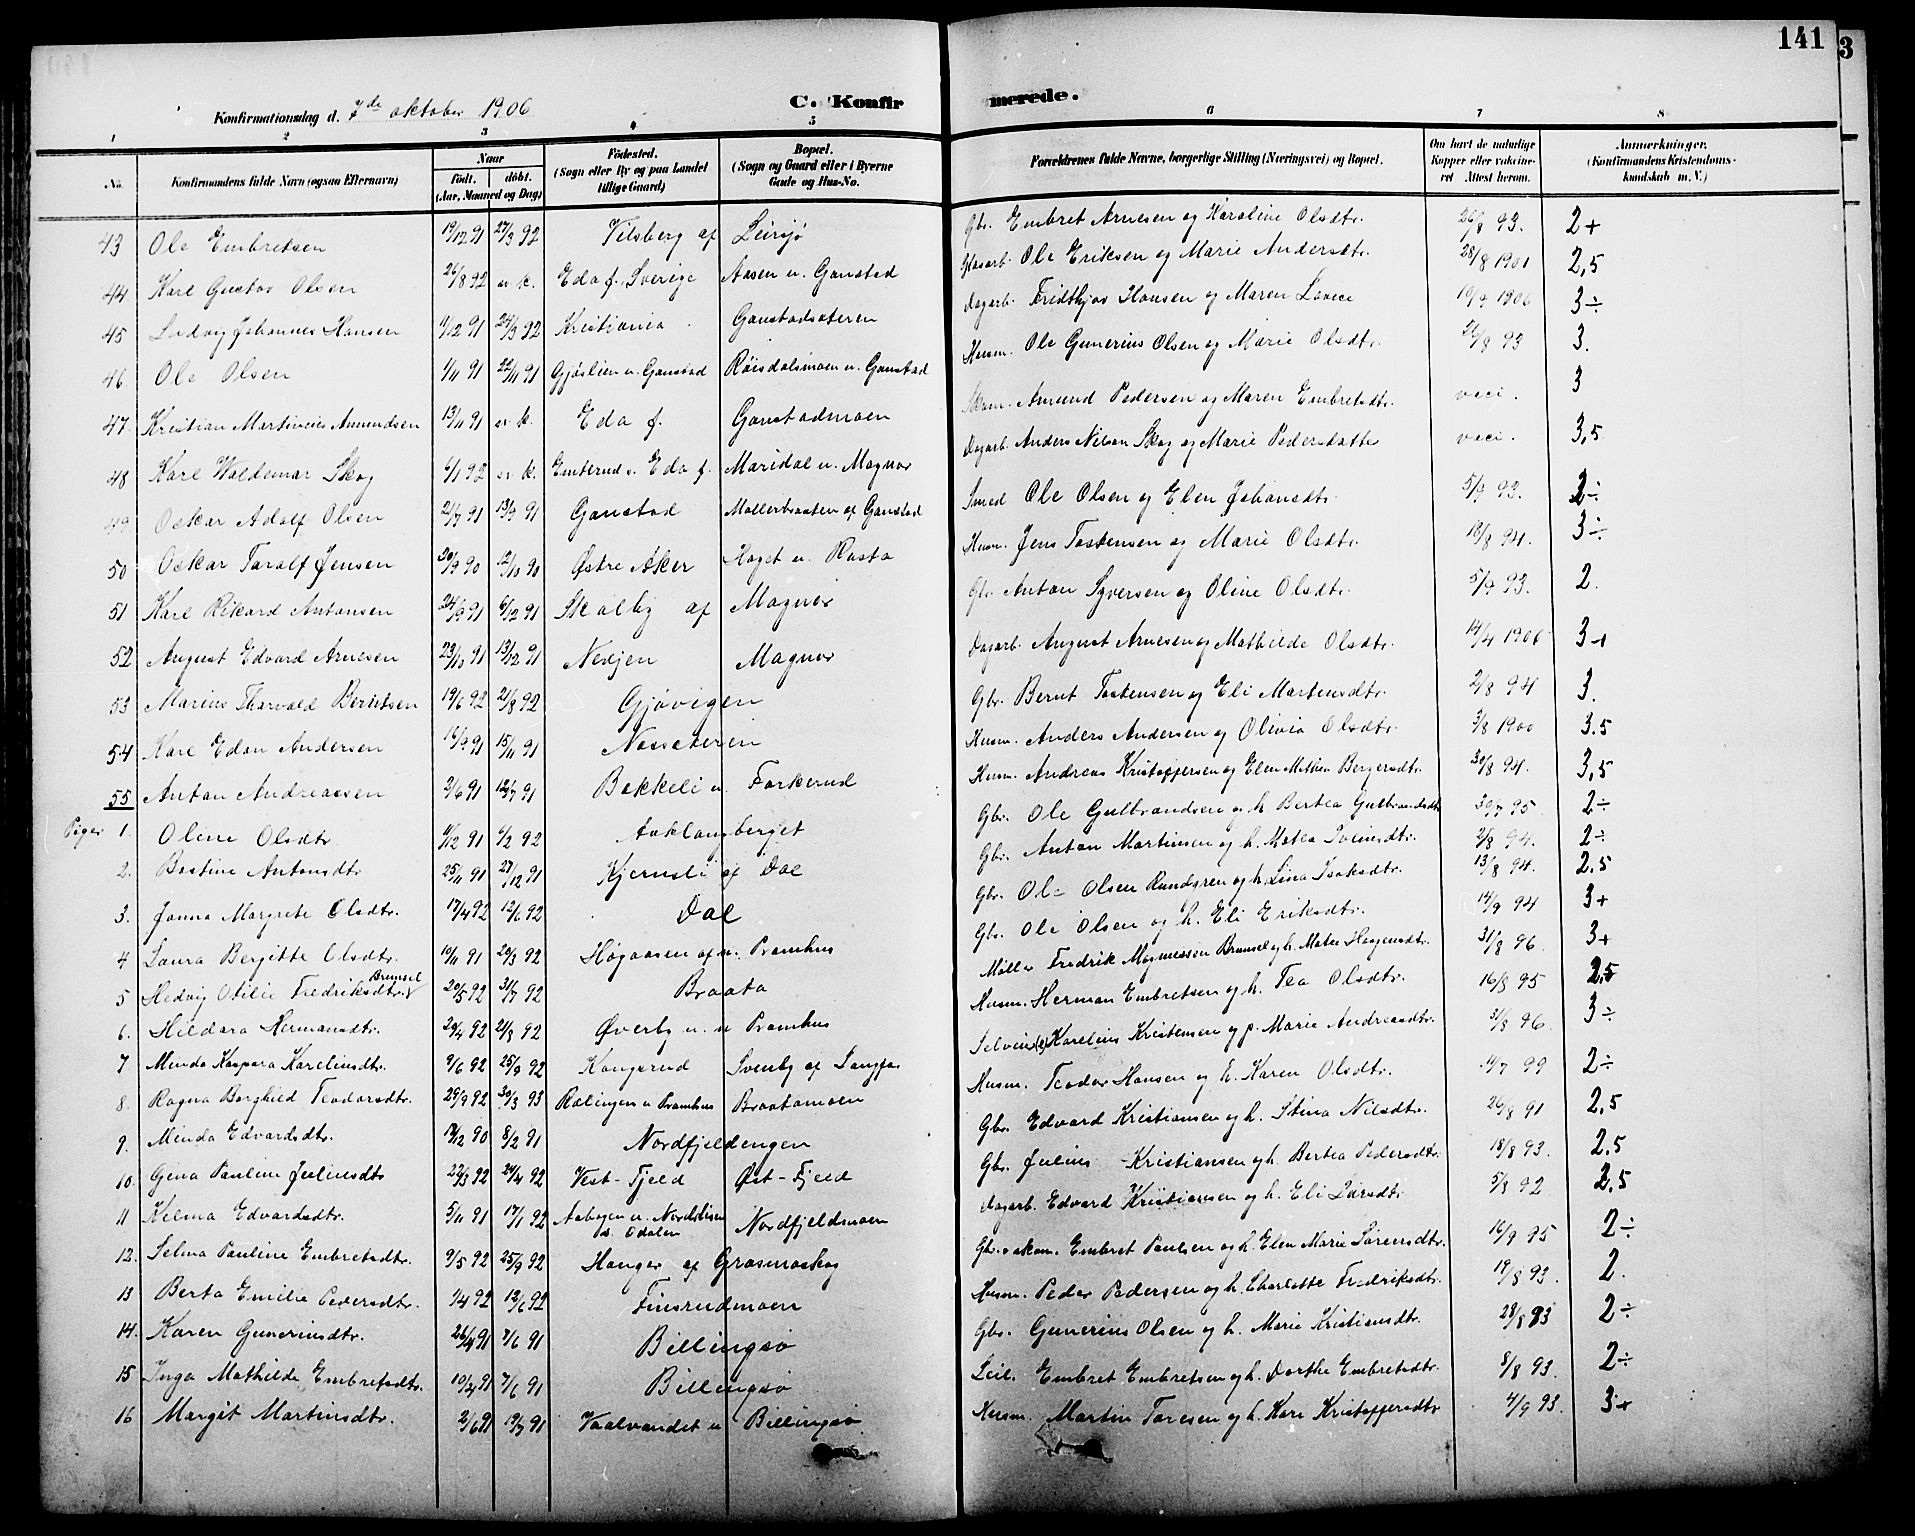 141
3
C. Konfirmerede.
Konfirmationsdag d. 7de oktober 1906
1 2 3 4 5 6 7 8
No. Konfirmandens fulde Navn (ogsaa Efternavn) Naar født. døbt. (Aar, Maaned og Dag) Fødested. (Sogn eller By og paa Landet tillige Gaard) Bopæl. (Sogn og Gaard eller i Byerne Gade og Hus-No. Forældrenes fulde Navne, borgerlige Stilling (Næringsvei) og Bopæl. Om havt de naturlige Kopper eller vaccineret Attest herom. Anmerkninger. (Konfirmandens Kristendomskundskab m. V.)
43 Ole Embretsen 19/12 91 27/3 92 Vilsberg af Leirsjø Gbr. Embret Arnesen og Karoline Olsdtr. 26/8 93. 2+
44 Karl Gustav Olsen 26/8 92 sv. k. Eda f. Sverige Aasen u. Gaustad Glasarb. Ole Eriksen og Marie Andersdtr. 28/8 1901 2,5
45 Ludvig Johannes Hansen 11/12 91 24/3 92 Kristiania Gaustadsæteren Dagarb. Fridthjov Hansen og Maren 19/9 1906 3÷
46 Ole Olsen 1/11 91 22/11 91 Gjøslien u. Gaustad Røisdalsmoen u. Gaustad Husm. Ole Gunerius Olsen og Marie Olsdtr. 26/8 93 3.
47. Kristian Martinius Amundsen 13/11 91 sv. k. Eda f. Gaustadmoen Skom. Amund Pedersen og Maren Embretsdtr. vaci. 3
48 Karl Waldemar Skog 6/1 92 sv. k. Emterud u. Eda f. Maridal u. Magnor Dagarb. Anders Nilsen Skog og Marie Pedersdatter vaci. 3,5
49 Oskar Adolf Olsen 21/7 91 13/9 91 Gaustad Møllerbraaten af Gaustad Smed Ole Olsen og Elen Johansdtr. 5/9 93. 2÷
50 Oskar Toralf Jensen 20/9 90 12/10 90 Østre Aker Haget u. Rasta Husm. Jens Tostensen og Marie Olsdtr. 18/8 94. 3÷
51 Karl Rikard Antonsen 24/9 91 6/12 91 Skalby af Magnor Gbr. Anton Syversen og Oline Olsdtr. 5/9 93. 2.
52 August Edvard Arnesen 23/10 91 13/12 91 Nesjen Magnor Dagarb. August Arnesen og Mathilde Olsdtr. 14/4 1906 3+
53 Marius Thorvald Berntsen 19/6 92 21/8 92 Gjøvigen Gbr. Bernt Tostensen og Eli Martensdtr. 2/8 94 3.
54 Karl Edon Andersen 16/9 91 15/11 91 Næsseteren Husm. Anders Andersen og Olivia Olsdtr. 3/8 1900 3.5
55 Anton Andreassen 2/6 91 12/7 91 Bakkeli u. Forkerud Husm. Andreas Kristoffersen og Elen Mathea Bergersdtr. 30/8 94. 3,5
Piger 1. Oline Olsdtr. 11/12 91 6/2 92 Aaklangberget Gbr. Ole Gulbrandsen og h. Bertea Gulbrandsdtr. 30/7 95. 2÷
2. Bastine Antonsdtr. 25/11 91 27/12 91 Kjernsli af Dal Gbr. Anton Martinsen og h. Matea Iverisdtr. 2/8 94. 2÷
3. Janna Margrete Olsdtr. 17/4 92 12/6 92 Dal Gbr. Ole Olsen Rundgren og h. Lina Isaksdtr. 13/8 94. 2.5
4 Laura Bergitte Olsdtr. 10/11 91 20/3 92 Høgaasen af n. Pramhus Gbr. Ole Olsen og h. Eli Eriksdtr. 14/9 94 3+
5 Hedvig Otilie Fredriksdtr. Brunsel 20/5 92 31/7 92 Braata Møller Fredrik Magnussen Brunsel og h. Matea Haagensdtr. 31/8 96. 3+
6. Hildara Hermansdtr. 20/4 92 21/8 92 Øverby u. n Pramhus Husm. Herman Embretsen og h. Tea Olsdtr. 16/8 95 2,5
7 Minda Kaspara Karelinsdtr. 9/6 92 25/9 92 Kongsrud Svenby af Langfos Selveier Karelius Kristensen og p. Marie Andreasdtr. 3/8 96. 3÷
8. Ragna Borghild Teodorsdtr. 25/9 92 30/3 93 Rælingen u Pramhus Braatamoen Husm. Teodor Hansen og h. Karen Olsdtr. 11/7 99 2÷
9. Minda Edvardsdtr. 17/12 90 8/2 91 Nordfjeldengen Gbr. Edvard Kristiansen og h. Stina Nilsdtr. 26/8 91 2,5
10. Gina Pauline Juliusdtr 22/3 92 24/4 92 Vest-Fjeld Øst-Fjeld Gbr. Julius Kristiansen og h. Bertea Pedersdtr. 18/8 93. 2,5
11 Kilma Edvardsdtr. 5/11 91 17/1 92 Aabogen u. s. Odalen Nordfjeldmoen Dagarb. Edvard Kristiansen og h. Eli Larsdtr. 5/8 92 2,5
12. Selma Pauline Embretsdtr. 9/5 92 25/9 92 Hanger af Grasmoskog Gbr. skom. Embret Paulsen og h. Elen Marie Sørensdtr. 16/9 95 2÷
13 Berta Emilie Pedersdtr. 1/4 92 12/6 92 Finsrudmoen Husm. Peder Pedersen og h. Charlotte Fredriksdtr. 19/8 93. 2.
14. Karen Guneriusdtr. 26/4 91 7/6 91 Billingsø Gbr. Gunerius Olsen og h. Marie Kristiansdtr. 28/8 93 2÷
15 Inga Mathilde Embretsdtr. 10/4 91 7/6 91 Billingsø Leil. Embret Embretsen og h. Dorthe Embretsdtr. 8/8 93. 2÷
16 Margit Martinsdtr. 2/6 91 19/7 91 Vaalvandet u Billingsø. Husm. Martin Toresen og h. Kari Kristoffersdtr 4/9 93. 3+